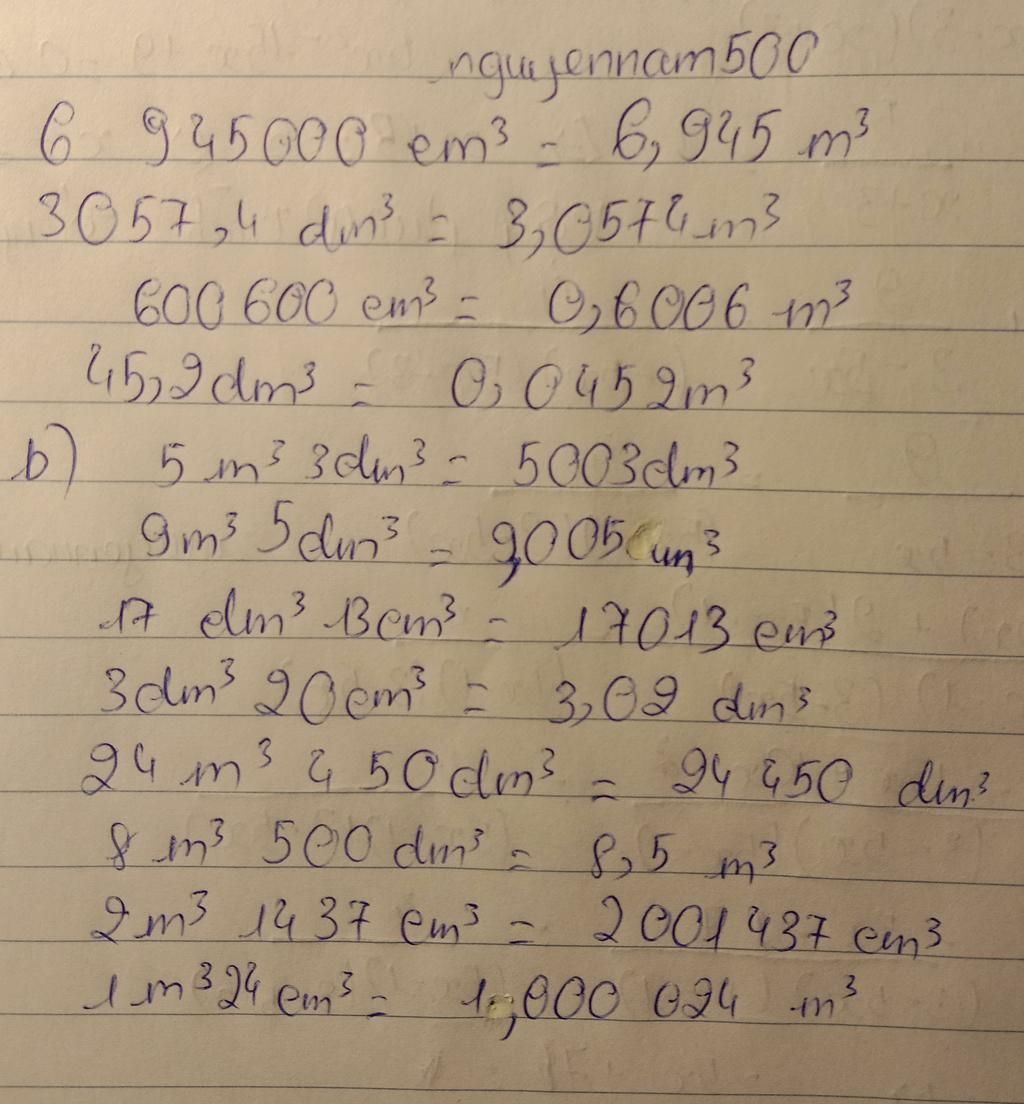 nguyennam500
6 945000 cm³ = 6,945 m³
3057,4 dm³ = 3,0574 m³
600 600 cm³ = 0,6006 m³
45,2 dm³ = 0,0452 m³
b) 5 m³ 3dm³ = 5003dm³
9m³ 5dm³ = 9,005 m³
17 dm³ 13cm³ = 17013 cm³
3dm³ 20cm³ = 3,02 dm³
24 m³ 450dm³ = 24 450 dm³
8 m³ 500 dm³ = 8,5 m³
2m³ 1437 cm³ = 2001437 cm³
1m³24cm³ = 1,000 024 m³